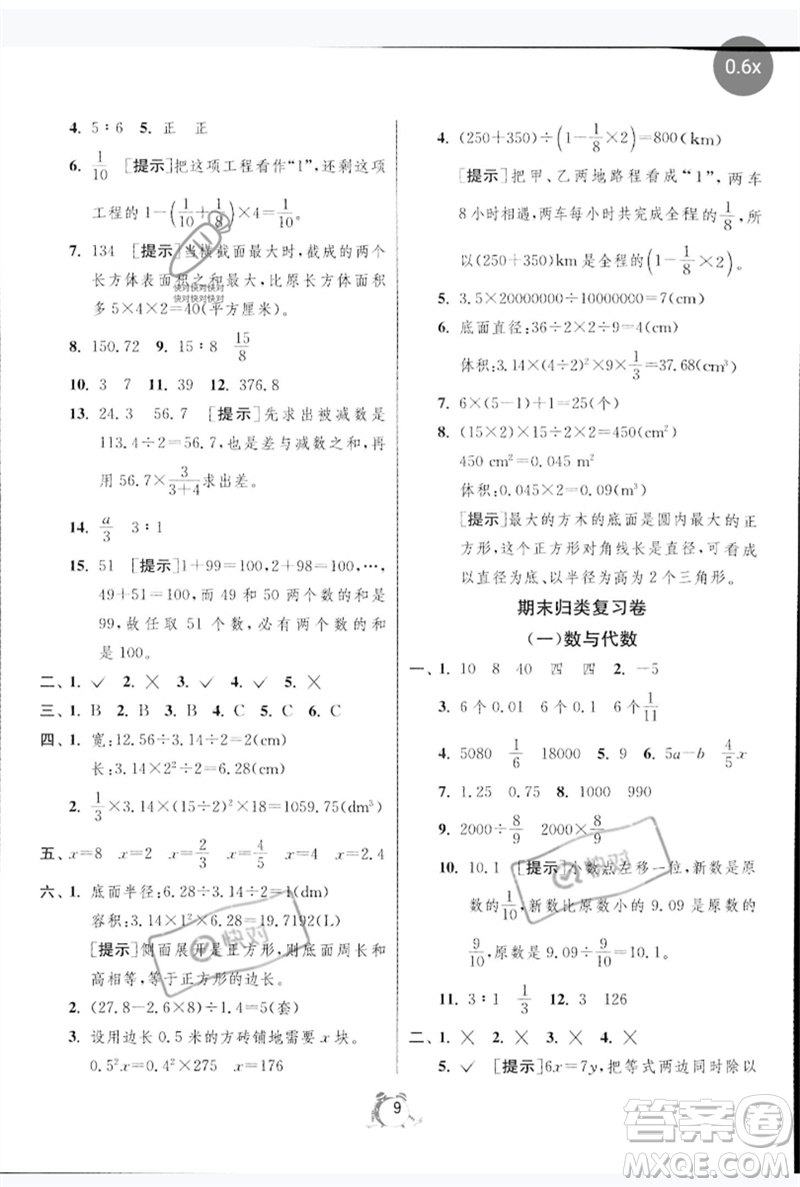 0.6x
4. 5∶6 5. 正 正
6. 1/10 [提示]把这项工程看作“1”,还剩这项
工程的1−(1/10+1/8)×4=1/10。
7. 134 [提示]当横截面最大时,截成的两个
长方体表面积之和最大,比原长方体面积
多5×4×2=40(平方厘米)。
快对快对快对
快对快对快对
8. 150.72 9. 15∶8 15/8
10. 3 7 11. 39 12. 376.8
13. 24.3 56.7 [提示]先求出被减数是
113.4÷2=56.7,也是差与减数之和,再
用56.7×3/(3+4)求出差。
14. a/3 3∶1
15. 51 [提示]1+99=100,2+98=100,…,
49+51=100,这里有49和50两个数
剩余,故任取51个数,必有两个数的和
是100。
二、1. ✓ 2. × 3. ✓ 4. ✓ 5. ×
三、1. B 2. B 3. B 4. C 5. C 6. C
四、1. 宽:12.56÷3.14÷2=2(cm)
长:3.14×2²÷2=6.28(cm)
2. 1/3×3.14×(15÷2)²×18=1059.75(dm³)
五、x=8 x=2/3 x=4/5 x=4 x=2.4
六、1. 底面半径:6.28÷3.14÷2=1(dm)
容积:3.14×1²×6.28=19.7192(L)
[提示]侧面展开是正方形,则底面周长和
高相等,等于正方形的边长。
2. (27.8−2.6×8)÷1.4=5(套)
3. 设用边长0.5米的方砖铺地需要x块。
0.5²x=0.4²×275 x=176
4. (250+350)÷(1−1/8×2)=800(km)
[提示]把甲、乙两地路程看成“1”,两车
8小时相遇,两车每小时共完成全程的1/8,所
以(250+350)km是全程的(1−1/8×2)。
5. 3.5×20000000÷10000000=7(cm)
6. 底面直径:36÷2÷9×2=4(cm)
体积:3.14×(4÷2)²×9×1/3=37.68(cm³)
7. 6×(5−1)+1=25(个)
8. (15×2)×15÷2×2=450(cm²)
450 cm²=0.045 m²
体积:0.045×2=0.09(m³)
[提示]最大的方木的底面是圆内最大的正方
形,这个正方形对角线长是直径,正方形可看作
以直径为底、以半径为高为2个三角形。
期末归类复习卷
(一)数与代数
一、1. 10 8 40 四 四 2. −5
3. 6个 0.01 6个 1 6个 1/11
4. 5080 1/6 18000 5. 9 6. 5a−b 4/5x
7. 1.25 0.75 8. 150
9. 2000÷8/9 2000×8/9
10. 10.1 [提示]小数点左移一位,新数是原
数的1/10,新数比原数小9.09是原数的
9/10,原数是9.09÷9/10=10.1。
11. 3∶1 1/3 12. 3 126
二、1. × 2. × 3. × 4. ×
5. ✓ [提示]6x=7y,把等式两边同时除以
快对
快对
9
答案圈
MXQE.COM